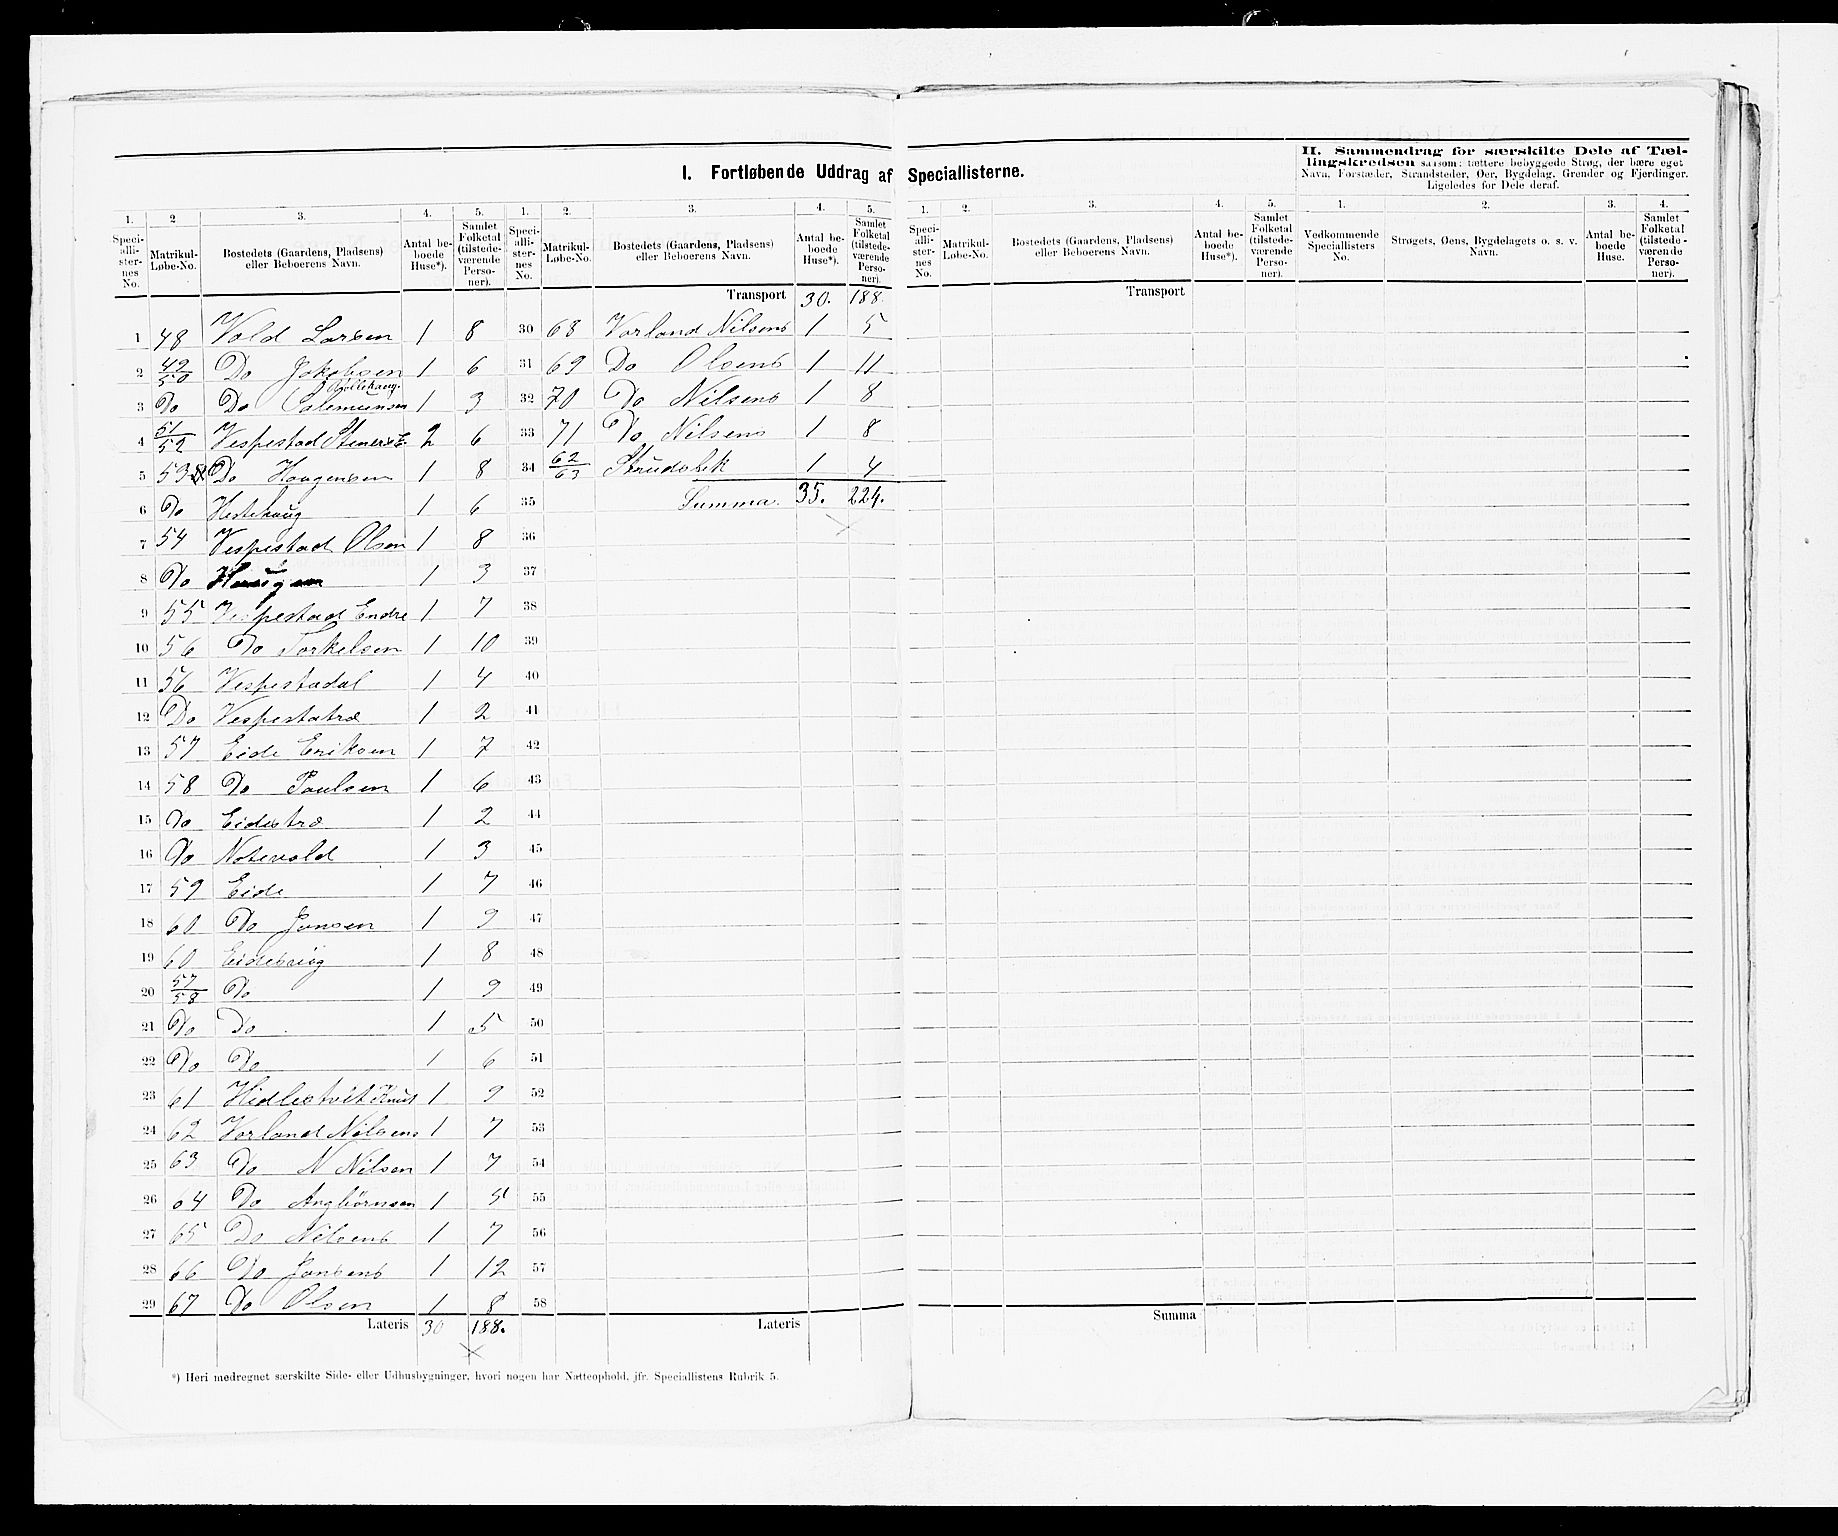 I. Fortløbende Uddrag af Speciallisterne.
II. Sammendrag for særskilte Dele af Tællingskredsen saasom: tættere bebyggede Strøg, der bære eget
Navn, Forstæder, Strandsteder, Øer, Bygdelag, Grender og Fjerdinger.
Ligeledes for Dele deraf.
1. 2 3. 4. 5. 1. 2. 3. 4. 5. 1. 2. 3. 4. 5. 1. 2. 3. 4.
Speciallisternes No. Matrikul-Løbe-No. Bostedets (Gaardens, Pladsens) eller Beboerens Navn. Antal beboede Huse*). Samlet Folketal (tilstedeværende Personer).
Speciallisternes No. Matrikul-Løbe-No. Bostedets (Gaardens, Pladsens) eller Beboerens Navn. Antal beboede Huse*). Samlet Folketal (tilstedeværende Personer).
Speciallisternes No. Matrikul-Løbe-No. Bostedets (Gaardens, Pladsens) eller Beboerens Navn. Antal beboede Huse*). Samlet Folketal (tilstedeværende Personer).
Vedkommende Speciallisters No. Strøgets, Øens, Bygdelagets o. s. v. Navn. Antal beboede Huse. Samlet Folketal (tilstedeværende Personer).
Transport 30. 188. Transport
1 48 Vold Larsen 1 8 30 68 Vorland Nilsens 1 5
2 49/50 Do Jakobsen 1 6 31 69 Do Olsens 1 11
3 Do Do Salemunsen 1 3 32 70 Do Nilsens 1 8
4 51/52 Vespestad 2 6 33 71 Do Nilsens 1 8
5 53 Do Haagensen 1 8 34 62/63 1 4
6 Do Hestehaug 1 6 35 Summa. 35. 224.
7 54 Vespestad Olsen 1 8 36
8 Do 1 3 37
9 55 Vespestad Endre 1 7 38
10 56 Do Torkelsen 1 10 39
11 56 Vespestadal 1 4 40
12 Do Vespestatræ 1 2 41
13 57 Eide Eriksen 1 7 42
14 58 Do Paulsen 1 6 43
15 Do Eidestræ 1 2 44
16 Do Notevold 1 3 45
17 59 Eide 1 7 46
18 60 Do Jonsen 1 9 47
19 60 Eidesvig 1 8 48
20 57/58 Do 1 9 49
21 Do Do 1 5 50
22 Do Do 1 6 51
23 61 Hidlestvit Knut 1 9 52
24 62 Vorland Nilsens 1 7 53
25 63 Do N Nilsen 1 7 54
26 64 Do 1 5 55
27 65 Do Nilsens 1 7 56
28 66 Do Jonsens 1 12 57
29 67 Do Olsen 1 8 58
Lateris 30 188. Lateris Summa
*) Heri medregnet særskilte Side- eller Udhusbygninger, hvori nogen har Natteophold, jfr. Speciallistens Rubrik 5.